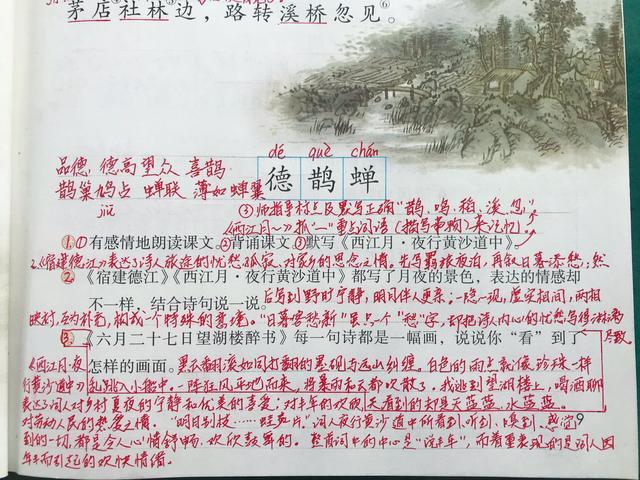 茅店社林边，路转溪桥忽见⑥。
dé què chán
品德 德高望众 喜鹊
德 鹊 蝉
鹊巢鸠占 蝉联 薄如蝉翼
jiū
③师指导村点及默写正确"鹊、鸣、稻、溪、忽"
《西江月～》抓"一"重点词语(描写事物)来记忆)
①①有感情地朗读课文。②背诵课文。③默写《西江月·夜行黄沙道中》。
2.《宿建德江》表达了诗人旅途的忧愁孤寂、对家乡的思念之情。先写羁旅夜泊，再叙日暮添愁，然
②《宿建德江》《西江月·夜行黄沙道中》都写了月夜的景色，表达的情感却
不一样，结合诗句说一说。后写到野旷宁静，明月伴人更亲；一隐一现，虚实相间，两相
映衬，互为补充，构成一个特殊的意境。"日暮客愁新"虽只一个"愁"字，却把诗人内心的忧愁写得淋漓
尽致
③《六月二十七日望湖楼醉书》每一句诗都是一幅画，说说你"看"到了
《西江月·夜 怎样的画面。黑云翻滚如同打翻的墨砚与远山纠缠。白色的雨点就像珍珠一样
行黄沙道中》乱跳入小船中。一阵狂风平地而来，将暴雨和天都吹散了，我逃到望湖楼上，喝酒聊
表达了词人对乡村夏夜的宁静和优美的喜爱；对丰年的欢欣 天看到的却是天蓝蓝，水蓝蓝。
对劳动人民的热爱之情。"明月别枝……蛙声片"词人夜行黄沙道中所看到、听到、嗅到、感觉
9
到的一切，都是令人心情舒畅、欢欣鼓舞的。整首词中的中心是"说丰年"，而着重表现的是词人因
年丰而引起的欢快情绪。